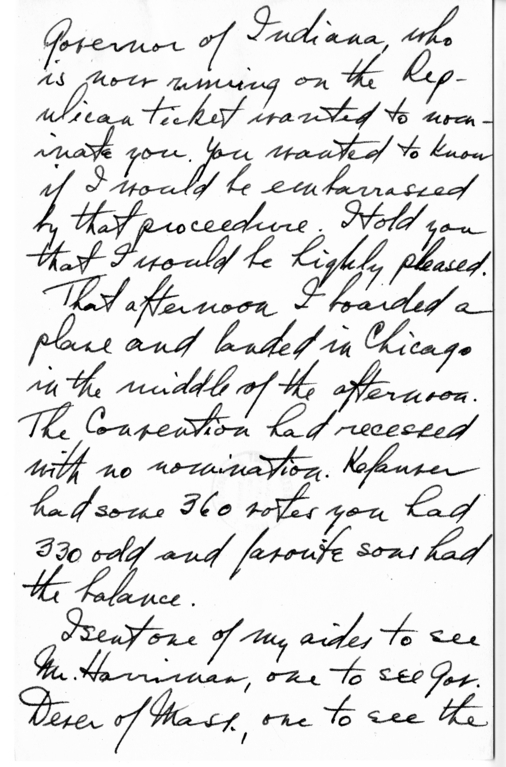 Governor of Indiana, who
is now running on the Rep-
ulican ticket wanted to nom-
inate you. You wanted to know
if I would be embarrassed
by that proceedure. I told you
that I would be highly pleased.
That afternoon I boarded a
plane and landed in Chicago
in the middle of the afternoon.
The Convention had recessed
with no nomination. Kefauver
had some 360 votes you had
330 odd and favorite sons had
the balance.
I sent one of my aides to see
Mr. Harriman, one to see Gov.
Dever of Mass., one to see the